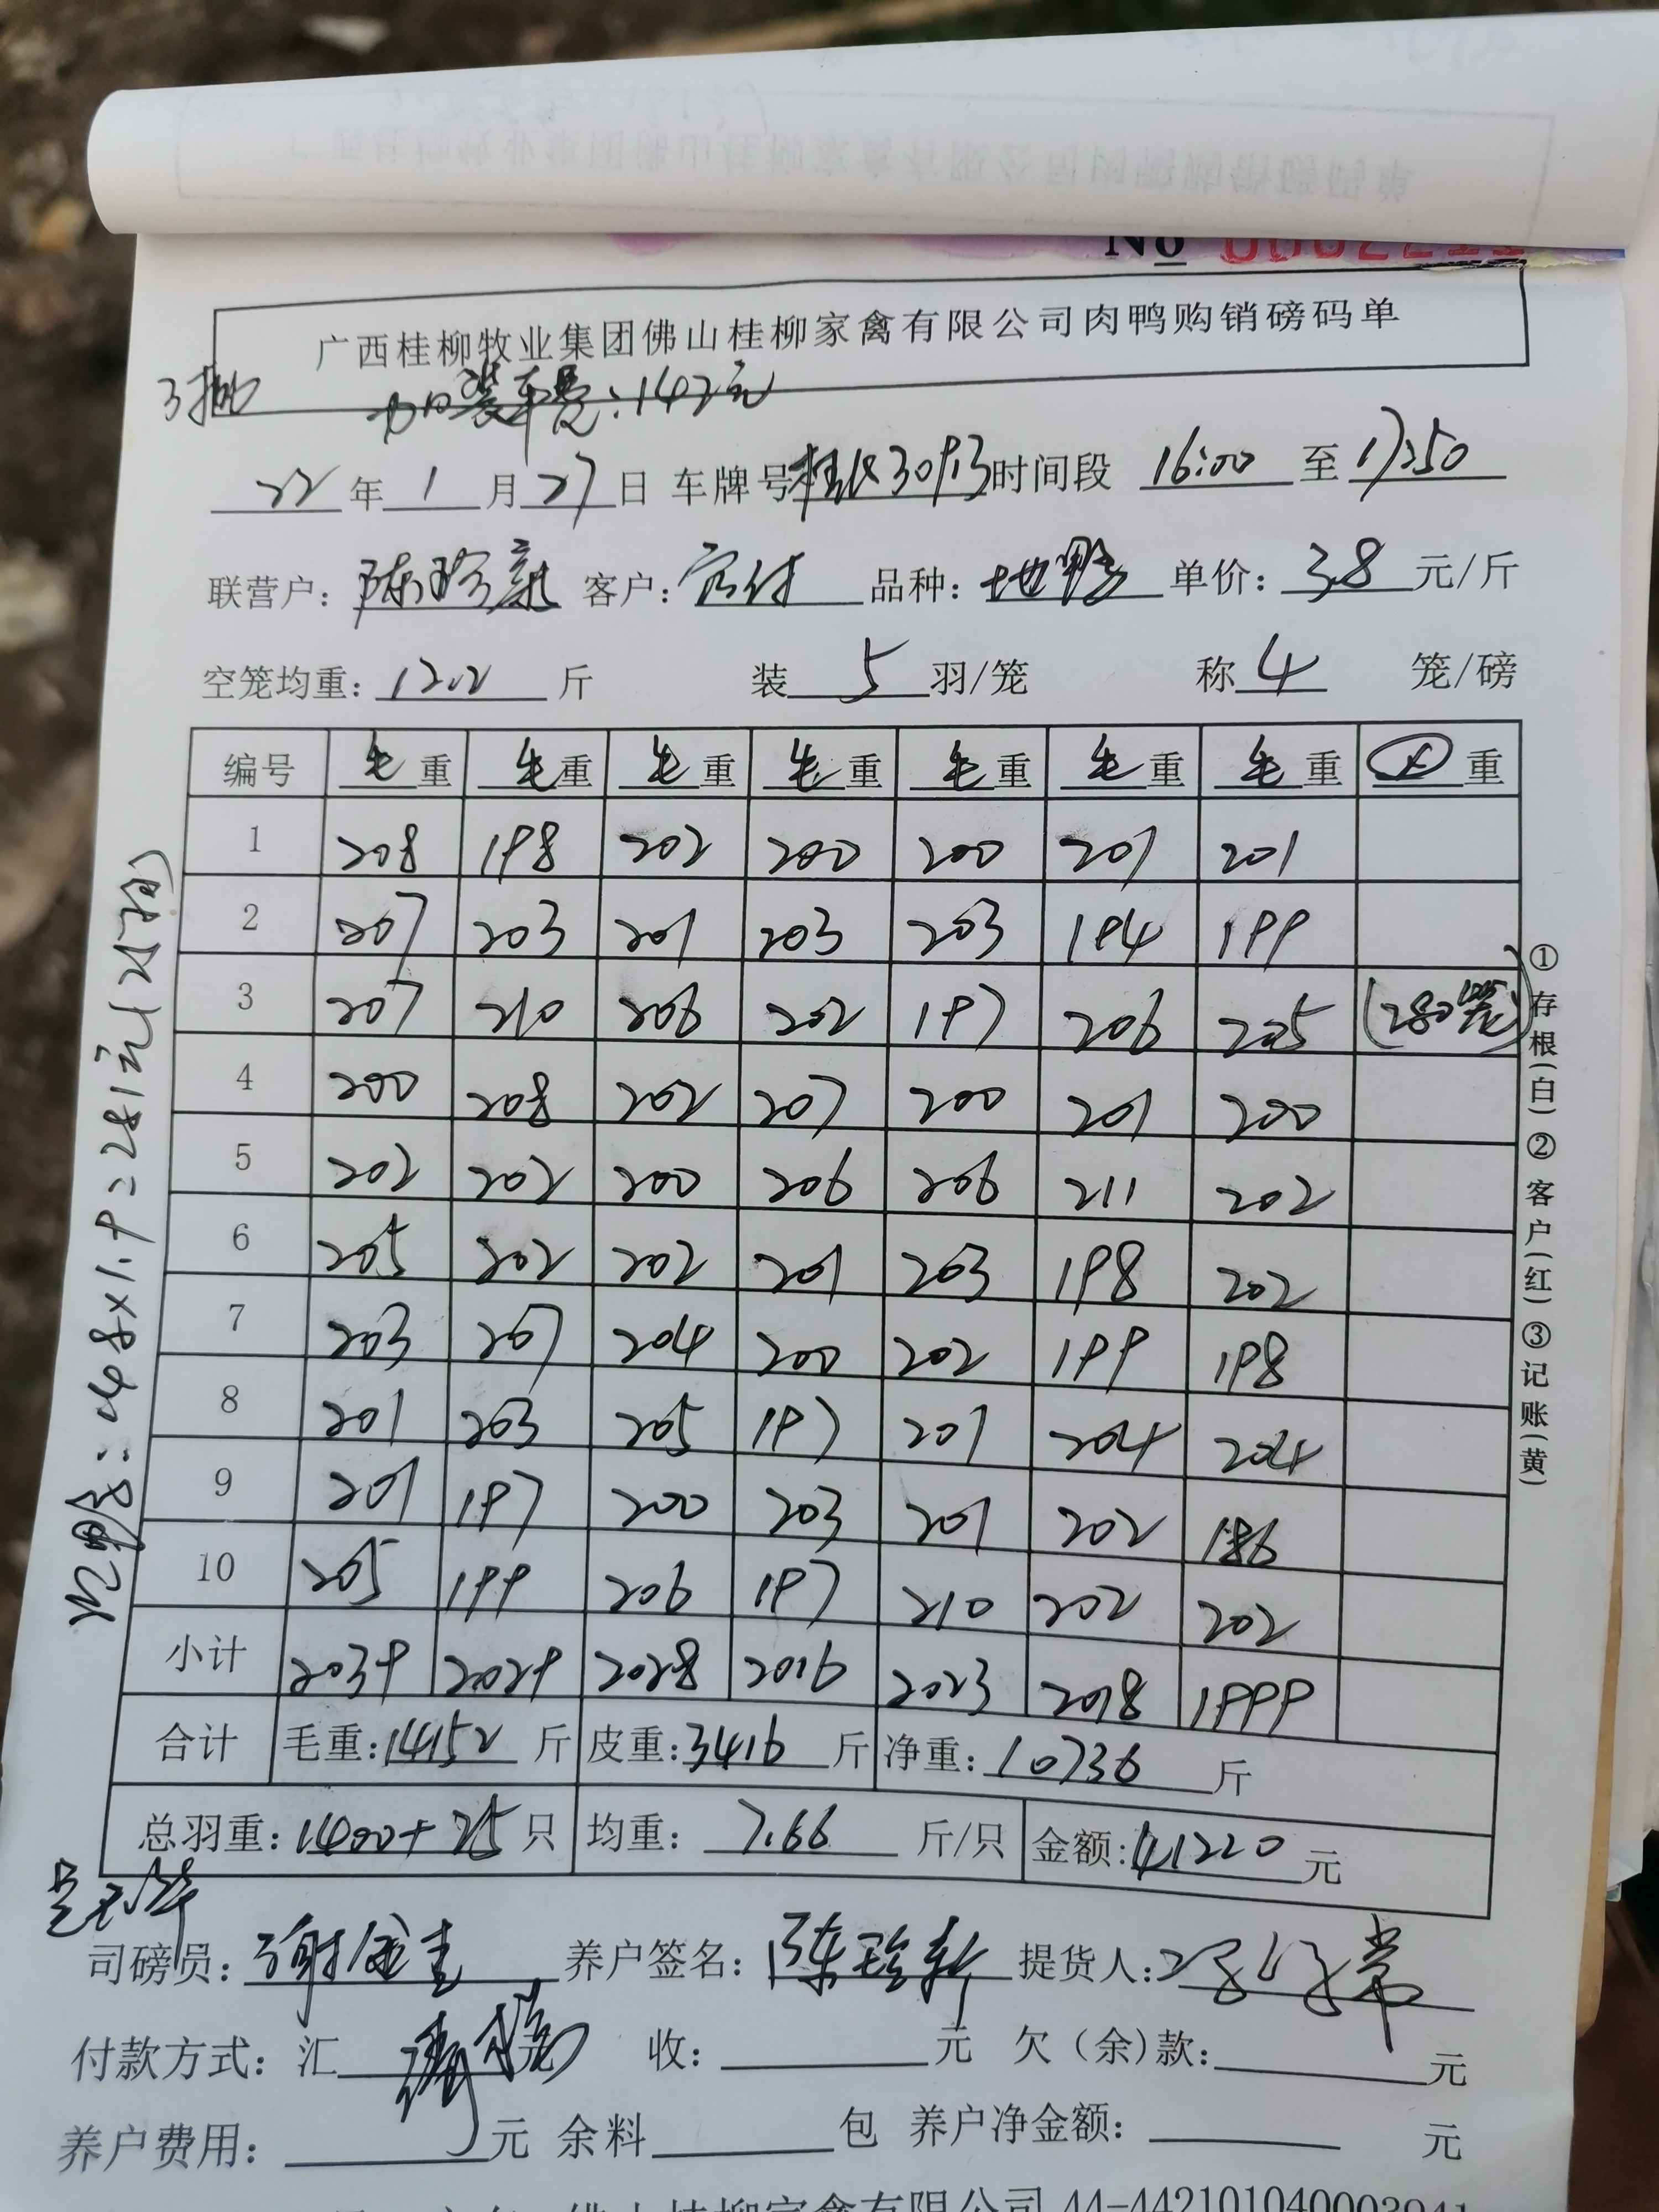 No 0002221
广西桂柳牧业集团佛山桂柳家禽有限公司肉鸭购销磅码单
加装车费:142元
22年1月27日 车牌号 时间段 16:00 至 17:50
联营户: 陈珍新 客户: 品种: 地鸭 单价: 3.8 元/斤
空笼均重: 12.2 斤 装 5 羽/笼 称 4 笼/磅
编号 毛重 毛重 毛重 毛重 毛重 毛重 毛重 重
1 208 198 202 200 200 201 201
2 207 203 201 203 203 194 199
3 207 210 206 202 197 206 205 (280笼)
4 200 208 202 207 200 201 200
5 202 202 200 206 206 211 202
6 205 202 202 201 203 198 202
7 203 207 204 200 202 199 198
8 201 203 205 197 201 204 204
9 201 197 200 203 201 202 186
10 205 199 206 197 210 202 202
小计 2039 2029 2028 2016 2023 2018 1999
合计 毛重: 14152 斤 皮重: 3416 斤 净重: 10736 斤
总羽重: 1400+25 只 均重: 7.66 斤/只 金额: 41220 元
司磅员: 谢金圭 养户签名: 陈珍新 提货人:
付款方式: 汇 收: 元 欠(余)款: 元
养户费用: 元 余料 包 养户净金额: 元
佛山桂柳家禽有限公司 44-442101040003941
①存根(白)②客户(红)③记账(黄)
鸭: 148×1.9=281元(25羽)